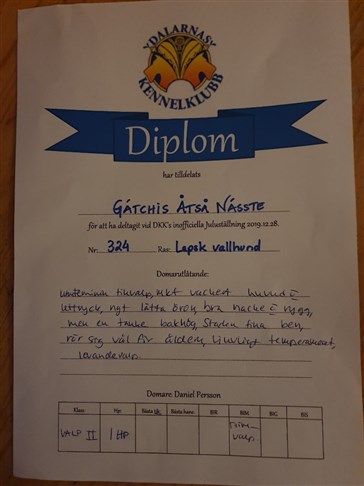 DALARNAS
KENNELKLUBB
Diplom
har tilldelats
GÁTCHIS ÅTSÅ NÁSSTE
för att ha deltagit vid DKK's inofficiella Julutställning 2019.12.28.
Nr: 324 Ras: Lapsk vallhund
Domarutlåtande:
tikvalp, vackert huvud
uttryck, lätta öron, bra nacke rygg,
men en tanke bakhög, fina ben,
rör sig väl för åldern, temperament,
Domare: Daniel Persson
Klass: Hp: Bästa tik: Bästa hane: BIR BIM BIG BIS
VALP II 1 HP
valp